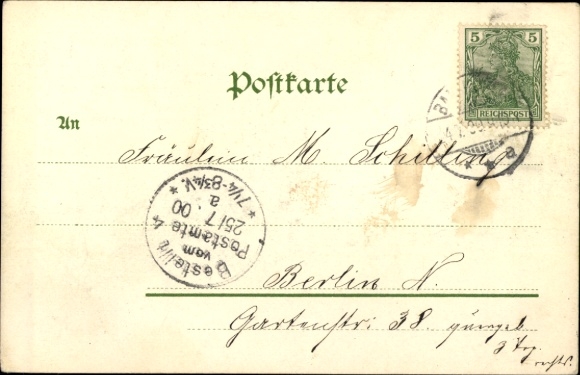 5 5
REICHSPOST
Postkarte
An
Fräulein M. Schilling
Bestellt
vom
Postamte 4
25/7 00
a
* 7¼-8¾V. *
Berlin N.
Gartenstr: 38
3 Trp.
rechts.